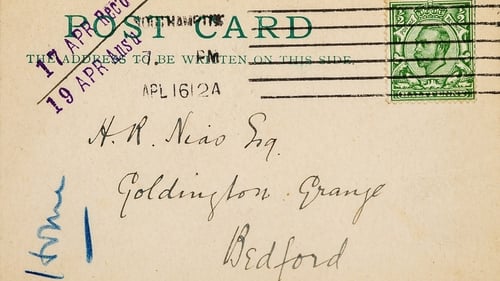 POST CARD
THE ADDRESS TO BE WRITTEN ON THIS SIDE.
17 APR Recd
19 APR Ansd
NORTHAMPTON
7 PM
APL 16 12 A
HALFPENNY
H. R. Nias Esq.
Goldington Grange
Bedford
Home